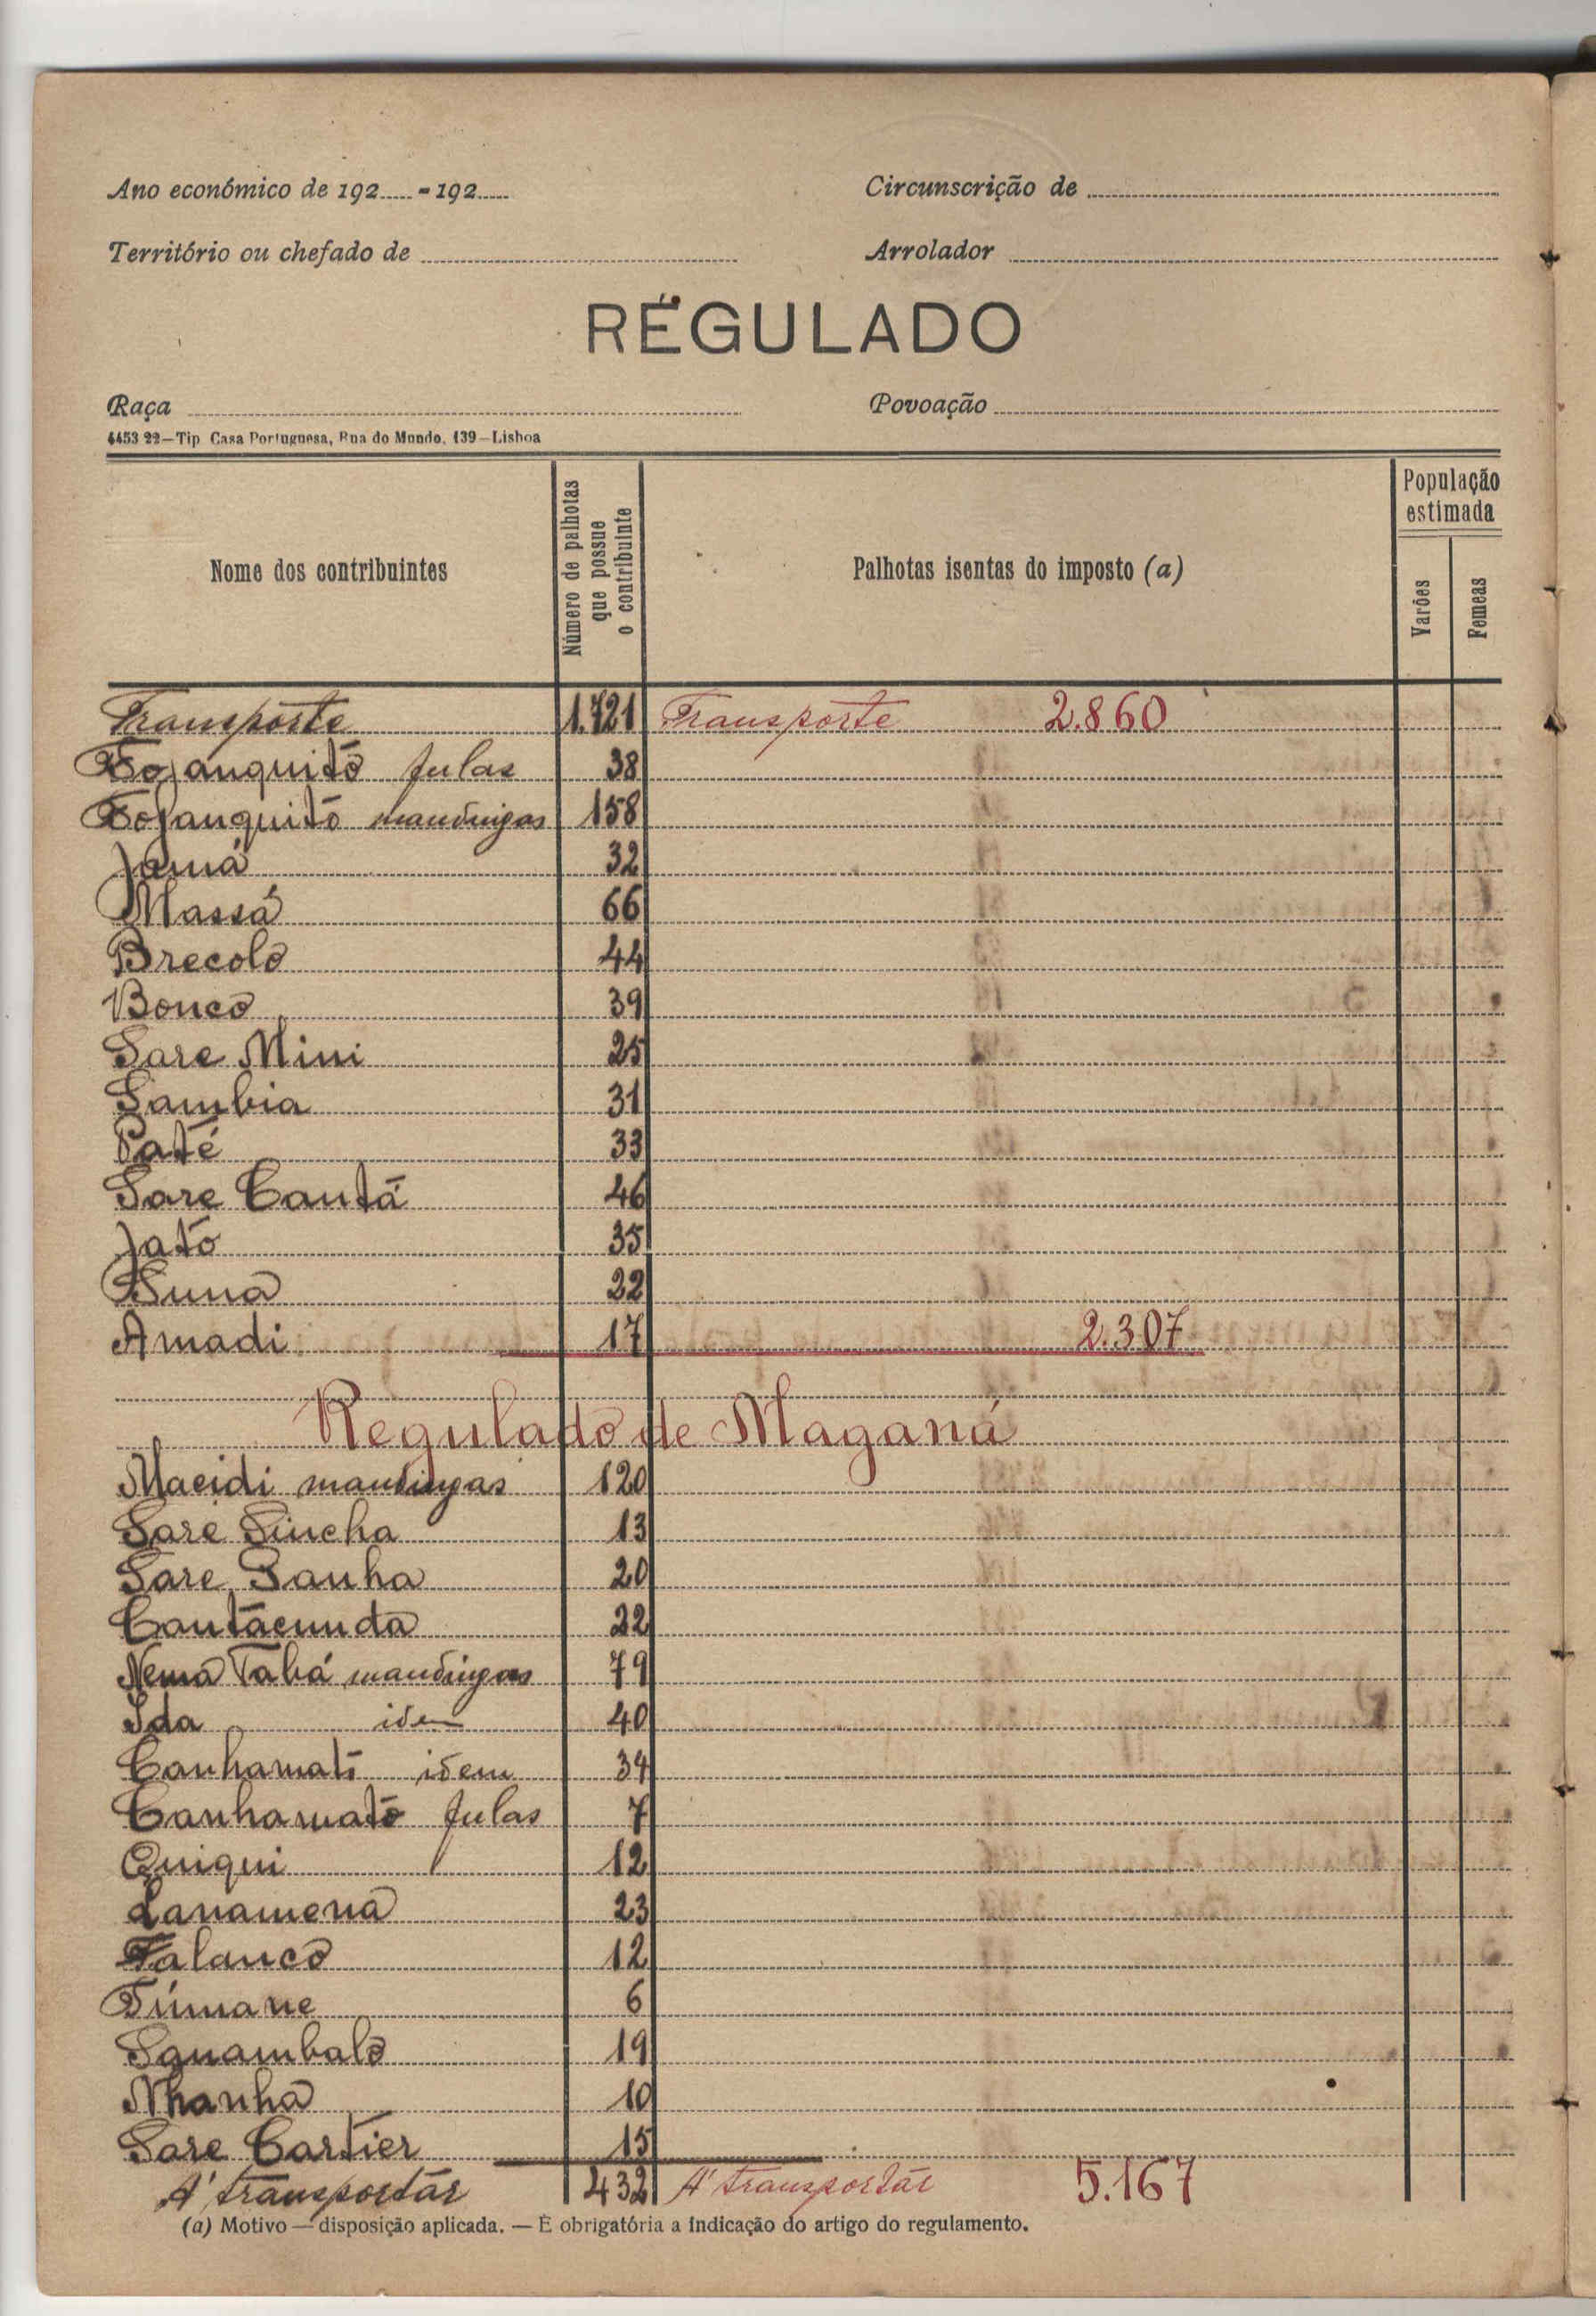 Ano económico de 192..... - 192..... Circunscrição de
Território ou chefado de Arrolador
RÉGULADO
Raça Povoação
4453 22—Tip Casa Portuguesa, Rua do Mundo, 139—Lisboa
Nome dos contribuintes
Número de palhotas
que possue
o contribuinte
Palhotas isentas do imposto (a)
População
estimada
Varões
Femeas
Transporte 1.721 Transporte 2.860
Fojanquitō fulas 38
Fojanquitō mandingas 158
Jamá 32
Massá 66
Brecolō 44
Boncō 39
Sare Mini 25
Sambia 31
Paté 33
Sare Cantá 46
Jatō 35
Sunā 22
Amadi 17 2.307
Regulado de Maganá
Macidi mandingas 120
Sare Sincha 13
Sare Sanha 20
Cantacunda 22
Nemā Tabá mandingas 79
Ida idem 40
Canhamatō idem 34
Canhamatō fulas 7
Quiqui 12
Lanamenā 23
Talancō 12
Túmane 6
Sanambalō 19
Nhanhā 10
Sare Cartier 15
A' transportár 432 A' transportár 5.167
(a) Motivo — disposição aplicada. — É obrigatória a indicação do artigo do regulamento.